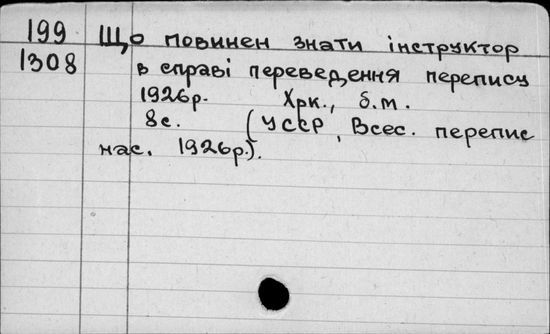 199 Що повинен знати інструктор
1308 в справі переведення перепису
1926р. Хрк., б.м.
8с. (УССР, Всес. перепис
нас. 1926р.).